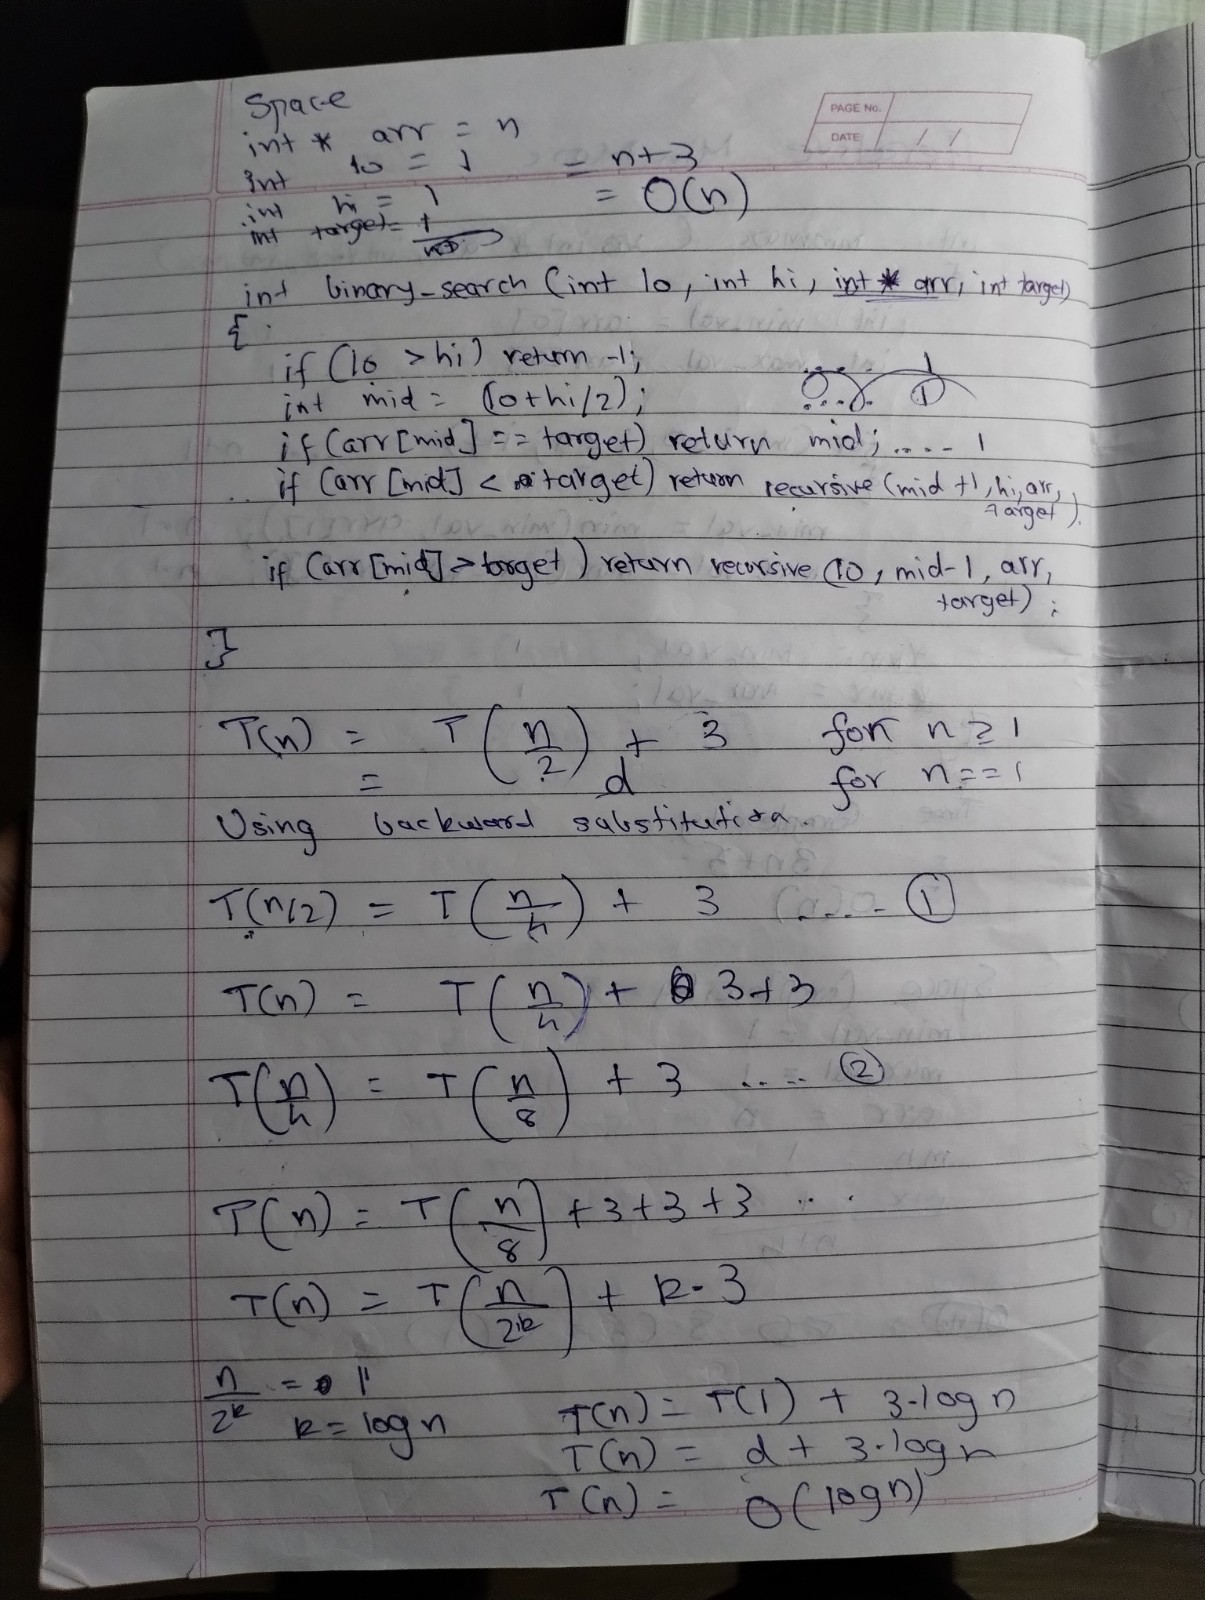 PAGE No.
DATE / /
Space
int * arr = n
int lo = 1 = n+3
int hi = 1 = O(n)
int target = 1
int binary-search (int lo, int hi, int * arr, int target)
{
if (lo > hi) return -1;
int mid = (lo+hi/2);
if (arr[mid] == target) return mid; .... 1
if (arr[mid] < target) return recursive (mid +1, hi, arr,
target).
if (arr[mid] > target) return recursive (lo, mid-1, arr,
target);
}
T(n) = T(n/2) + 3 for n ≥ 1
= d for n == 1
Using backward substitution.
T(n/2) = T(n/4) + 3 .... ①
T(n) = T(n/4) + 3+3
T(n/4) = T(n/8) + 3 .... ②
T(n) = T(n/8) +3+3+3 ...
T(n) = T(n/2^k) + k·3
n/2^k = 1
k = log n T(n) = T(1) + 3·log n
T(n) = d + 3·log n
T(n) = O(log n)